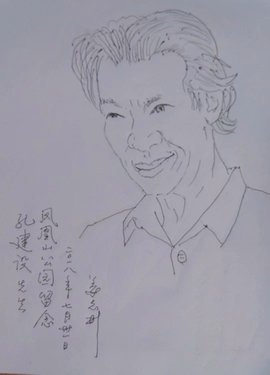 孔建设先生
凤凰山公园留念
二〇一八年七月卅一日
姜